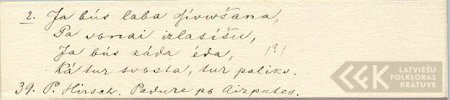 2. Ja būs laba dzīvošana,
Pa vonai izlasīšu,
Ja būs sāda ēda, (?)
Kā tur svosta, tur paliks.
39. P. Hirsch. Padure pa Aizputes.
LATVIEŠU
FOLKLORAS
KRĀTUVE